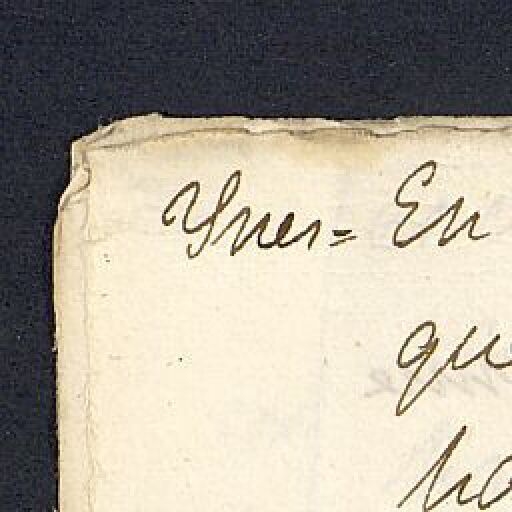 Ynes= En
qu
ho